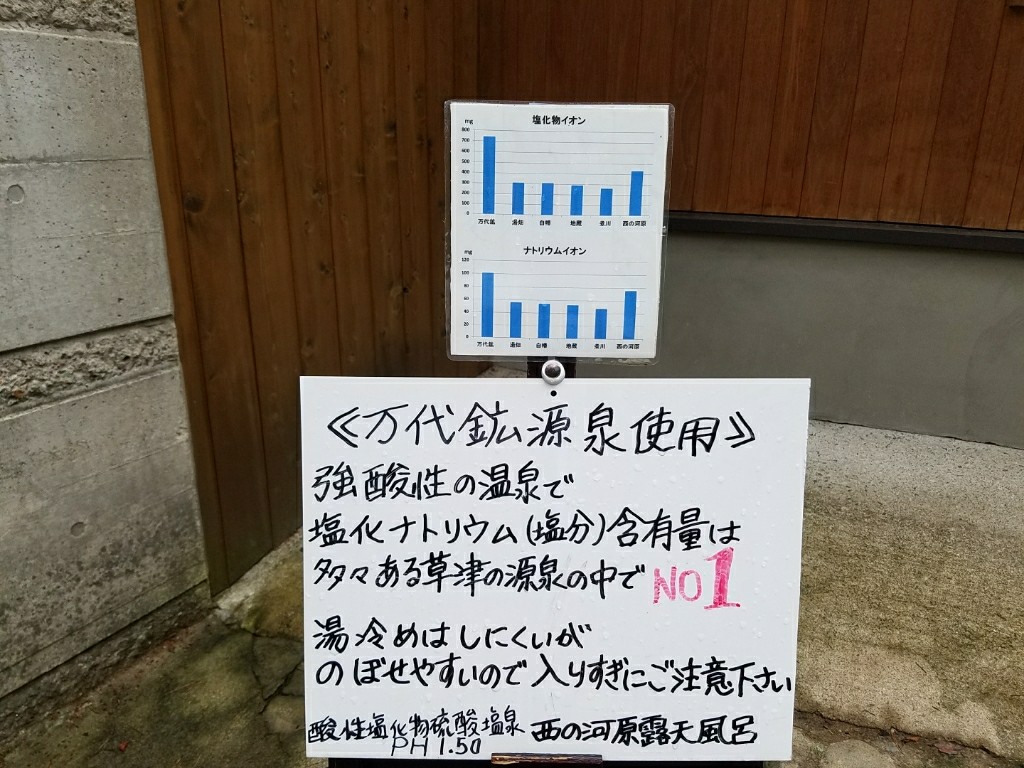 塩化物イオン
mg
800
700
600
500
400
300
200
100
0
万代鉱 湯畑 白幡 地蔵 煮川 西の河原
ナトリウムイオン
mg
120
100
80
60
40
20
0
万代鉱 湯畑 白幡 地蔵 煮川 西の河原
≪万代鉱源泉使用≫
強酸性の温泉で
塩化ナトリウム(塩分)含有量は
多々ある草津の源泉の中でNO1
湯冷めはしにくいが
のぼせやすいので入りすぎにご注意下さい
酸性塩化物硫酸塩泉 西の河原露天風呂
PH 1.50